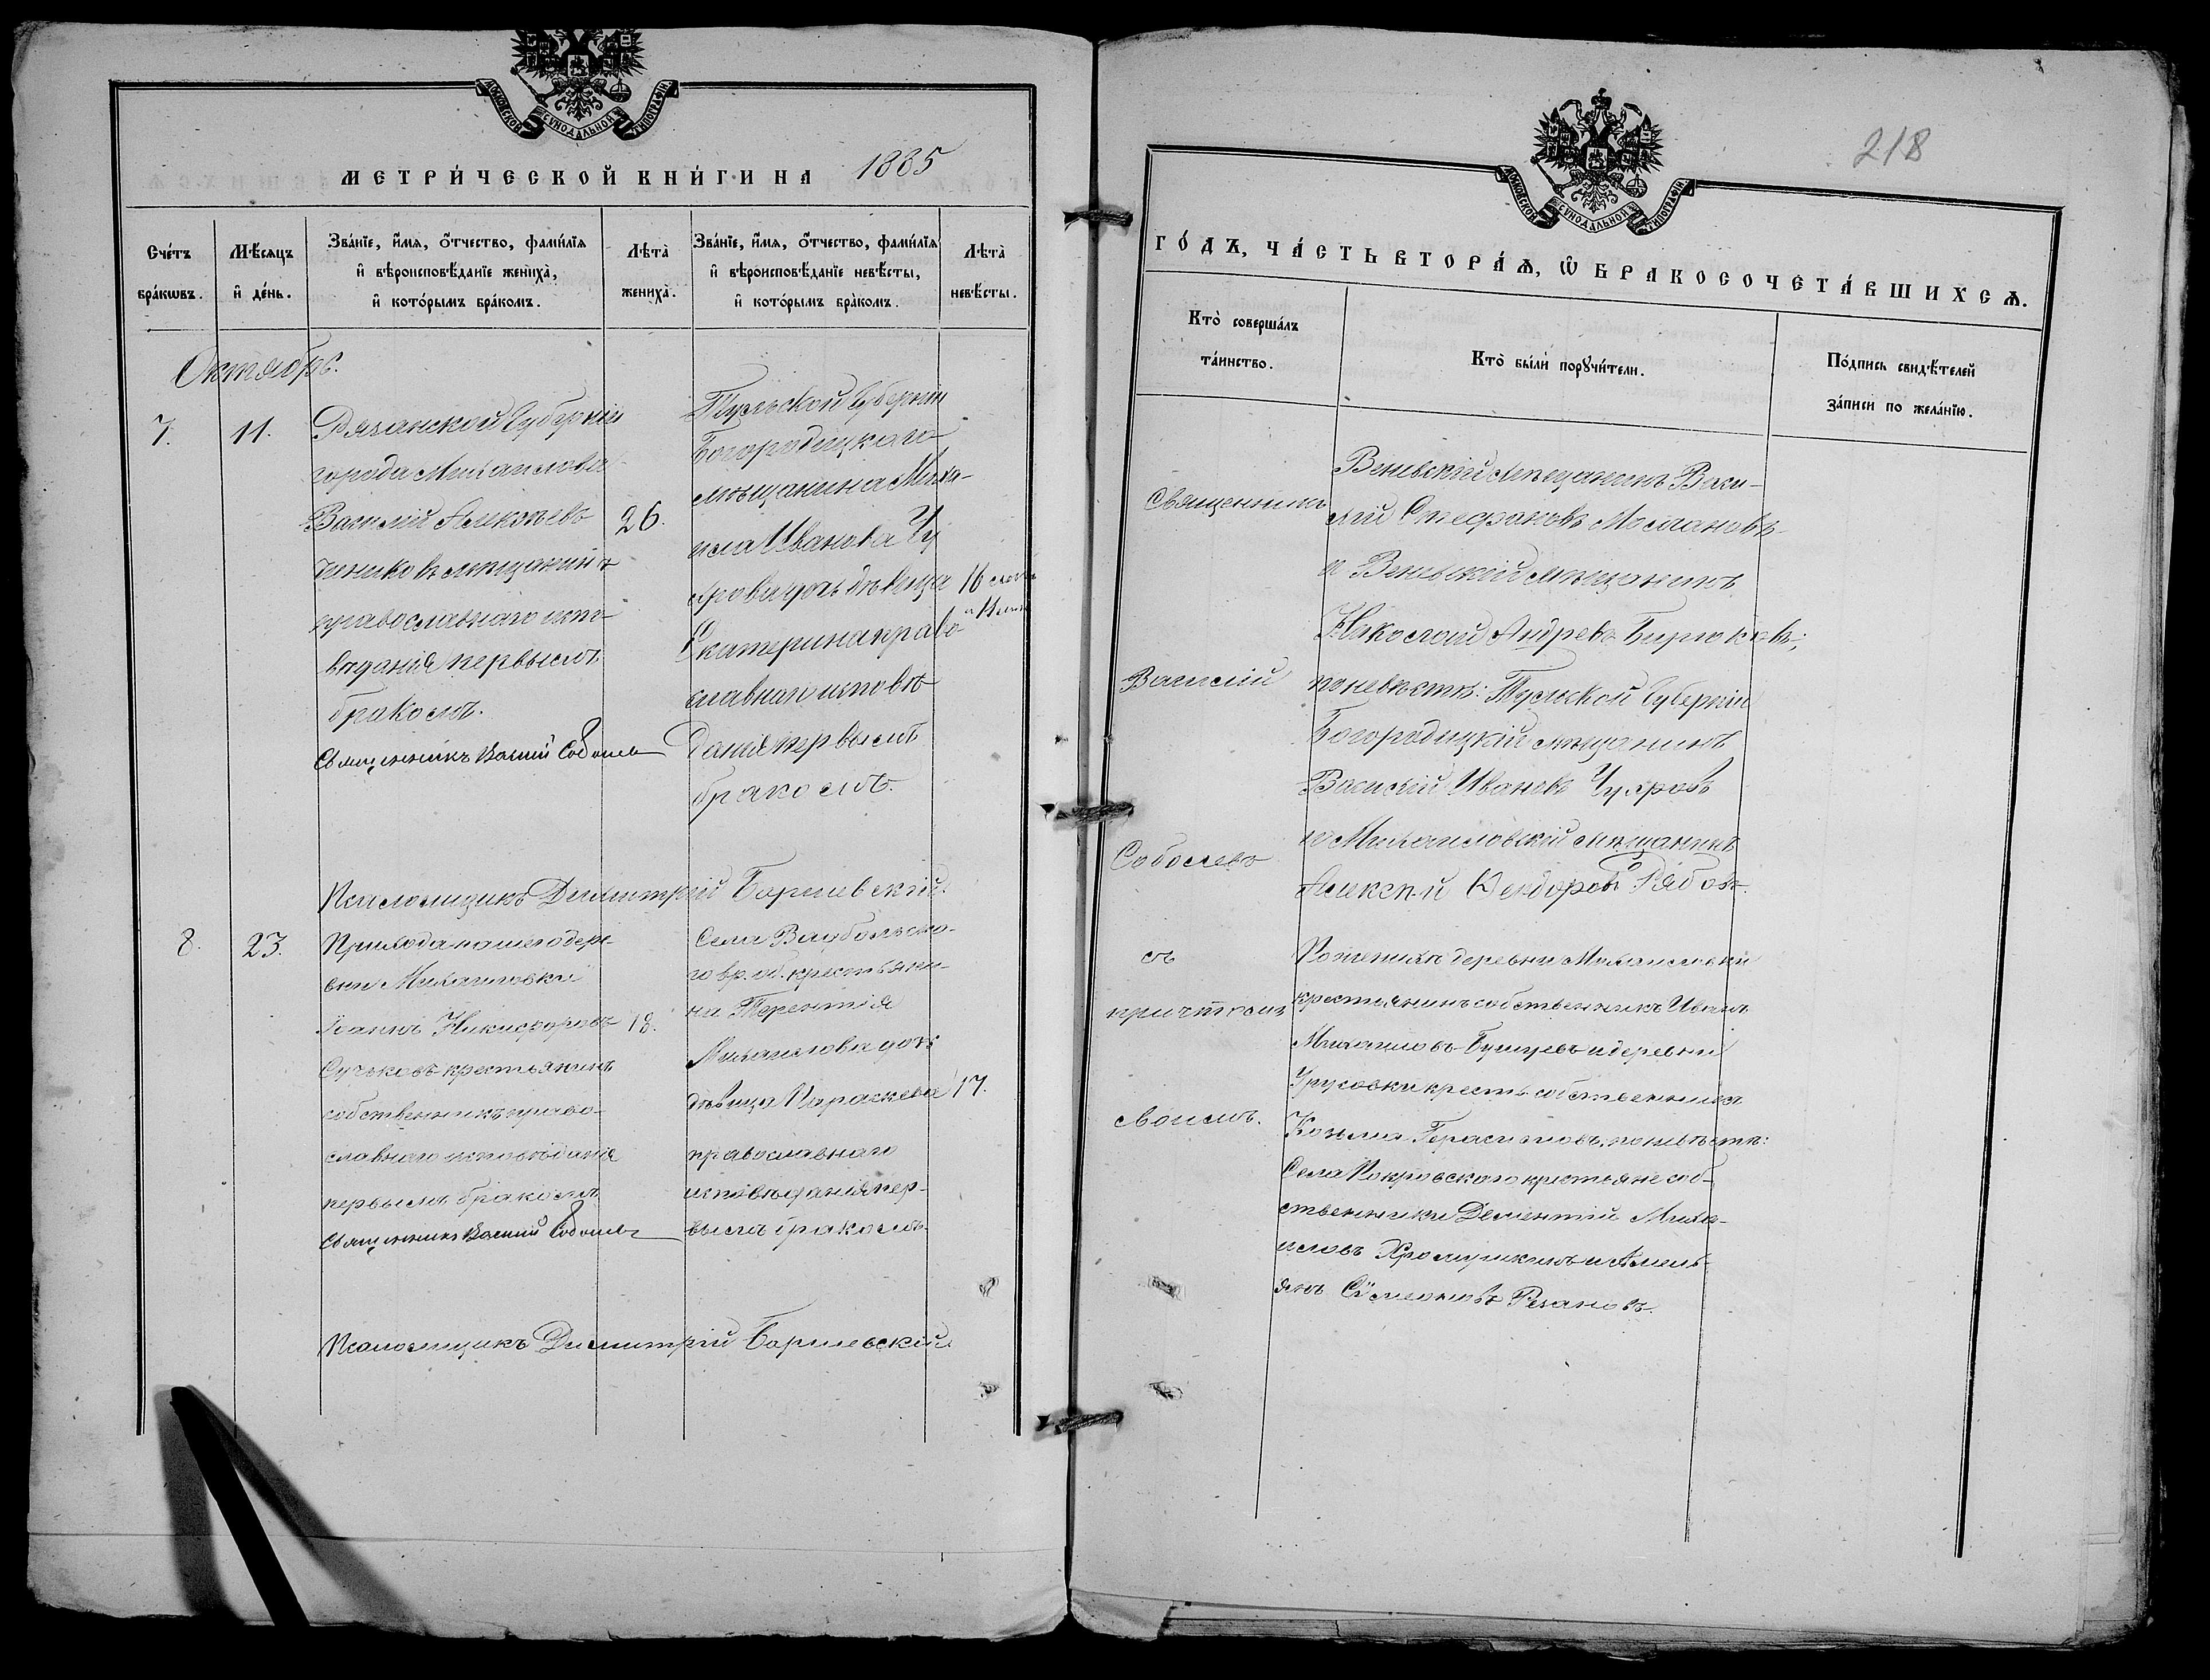 МОСКОВСКОЙ СѴНОДАЛЬНОЙ ТИПОГРАФІИ.
МЕТРИ́ЧЕСКОЙ КНИ́ГИ НА 1885
Счетъ бра́кѡвъ.
Мѣ́сяцъ и҆ де́нь.
Зва́нїе, и҆́мѧ, ѻ҆́тчество, фами́лїѧ
и҆ вѣроисповѣ́данїе жениха̀,
и҆ кото́рымъ бра́комъ.
Лѣта̀ жениха̀.
Зва́нїе, и҆́мѧ, ѻ҆́тчество, фами́лїѧ
и҆ вѣроисповѣ́данїе невѣ́сты,
и҆ кото́рымъ бра́комъ.
Лѣта̀ невѣ́сты.
Октябрь.
7.
11.
Рязанской Губерніи
города Михаилова
Василій Алексѣевъ
мѣщанинъ
православнаго испо-
вѣданія первымъ
бракомъ.
Священникъ Василій Соболевъ
26.
Тульской Губерніи
Богородицкаго
мѣщанина Миха-
ила Иванова Чу
дѣвица
Екатерина право
славнаго исповѣ
данія первымъ
бракомъ.
16
Псаломщикъ Димитрій Борщевскій.
8.
23.
Прихода нашего дерe-
вни Михаиловки
Іоаннъ Никифоровъ
Сучковъ крестьянинъ
собственникъ право-
славнаго исповѣданія
первымъ бракомъ
Священникъ Василій Соболевъ
18.
Села
крестьяни-
на Терентія
Михаилова дочь
дѣвица Параскева
православнаго
исповѣданія пер-
вымъ бракомъ.
17.
Псаломщикъ Димитрій Борщевскій
218
МОСКОВСКОЙ СѴНОДАЛЬНОЙ ТИПОГРАФІИ.
ГО́ДЪ, ЧА́СТЬ ВТОРА́Ѧ, Ѡ҆ БРАКОСОЧЕТА́ВШИХСѦ.
Кто̀ соверша́лъ
та́инство.
Кто̀ бы́ли порꙋчи́тели.
По́дпись свидѣ́телей
за́писи по жела́нїю.
Священникъ
Василій
Соболевъ
съ
причтомъ
своимъ.
Веневскій мѣщанинъ Васи-
лій Стефановъ
и Веневскій мѣщанинъ
Николай Андреевъ Бирюковъ;
по невѣстѣ: Тульской Губерніи
Богородицкій мѣщанинъ
Василій Ивановъ
и Михаиловскій мѣщанинъ
Алексѣй Ѳеодоровъ Рябовъ.
По женихѣ деревни Михаиловки
крестьянинъ собственникъ Иванъ
Михаиловъ и деревни
Урусовки крестьян. собственникъ
Козьма Герасимовъ, по невѣстѣ:
Села Покровскаго крестьяне соб-
ственники Дементій Миха-
иловъ Хромушкинъ и Амель-
янъ Сѵмеоновъ Резановъ.